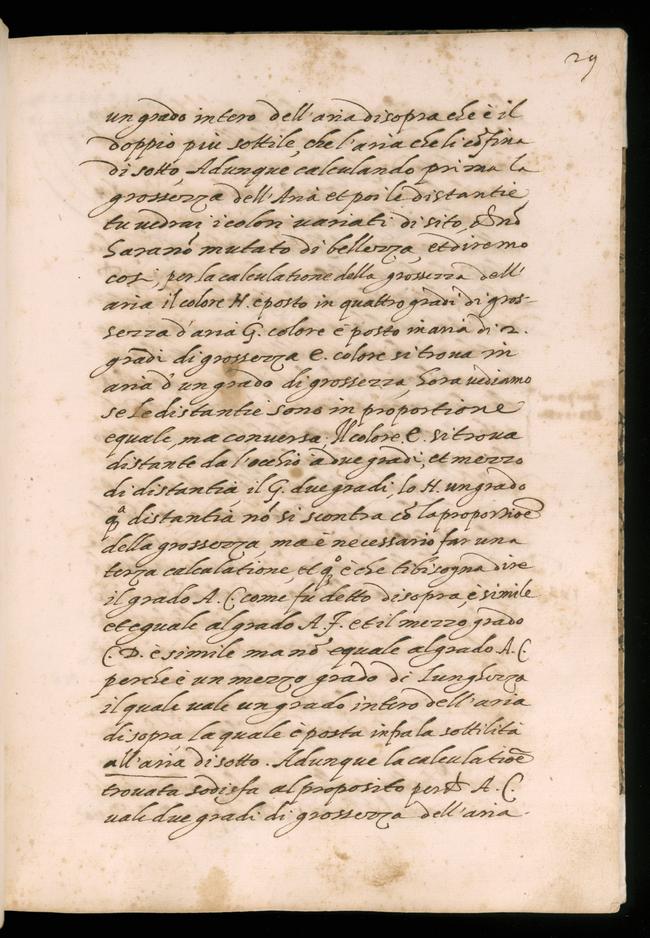 29
un grado intero dell'aria disopra che è il
doppio più sottile, che l'aria che li cōfina
di sotto, Adunque calculando prima la
grossezza dell'Aria et poi le distantie
tu vedrai i colori variati di sito, nō
haranō mutato di bellezza, et diremo
cosi, per la calculatione della grossezza dell'
aria il colore H. e posto in quattro gradi di gros-
sezza d'aria G. colore è posto in aria di 2.
gradi di grossezza E. colore si trova in
aria d'un grado di grossezza, hora vediamo
se le distantie sono in proportione
equale, ma conversa, Il colore E. si trova
distante da l'occhio à due gradi, et mezzo
di distantia il G. due gradi, lo H. un grado
qᵃ distantia nō si scontra cō la proportioē
della grossezza, ma è necessario far una
terza calculatione, et qᵒ è che ti bisogna dire
il grado A. C. come fu detto disopra, è simile
et equale al grado A. F. et il mezzo grado
C. D. è simile ma nō equale al grado A. C
perche è un mezzo grado di lunghezza
il quale vale un grado intero dell'aria
disopra la quale è posta la sottilità
all'aria di sotto. Adunque la calculatioē
trovata sodisfa al proposito A. C.
vale due gradi di grossezza dell'aria.